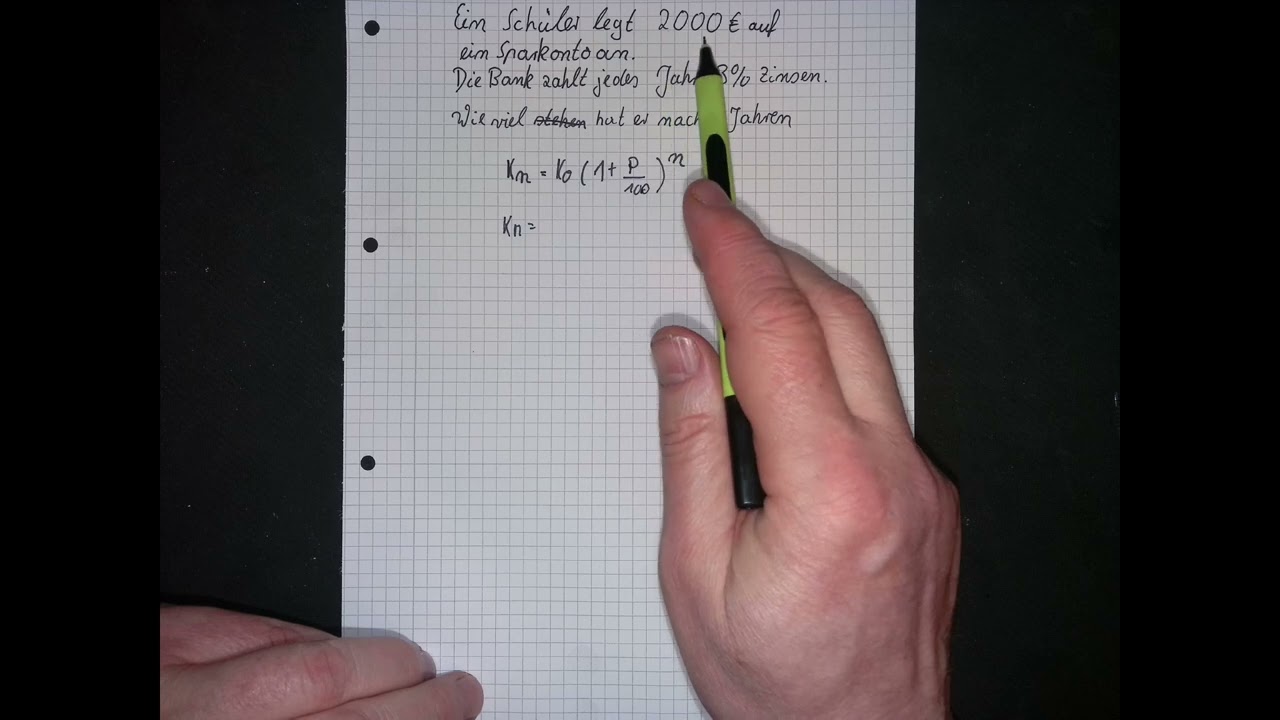 Ein Schüler legt 2000 € auf
ein Sparkonto an.
Die Bank zahlt jedes Jahr 3% Zinsen.
Wie viel stehen hat er nach Jahren
Kn = K0 (1 + P/100)^n
Kn =